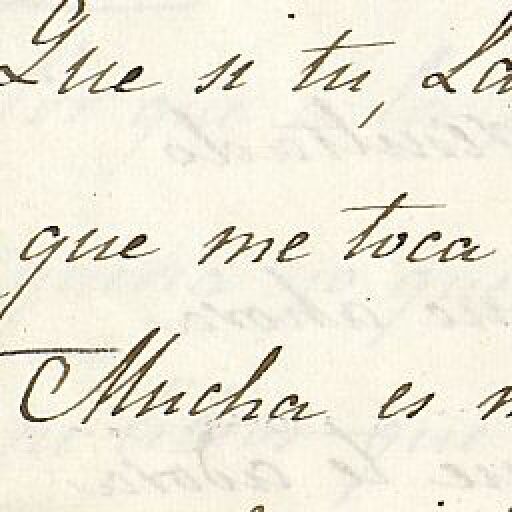 Que si tu, La
que me toca
Mucha es